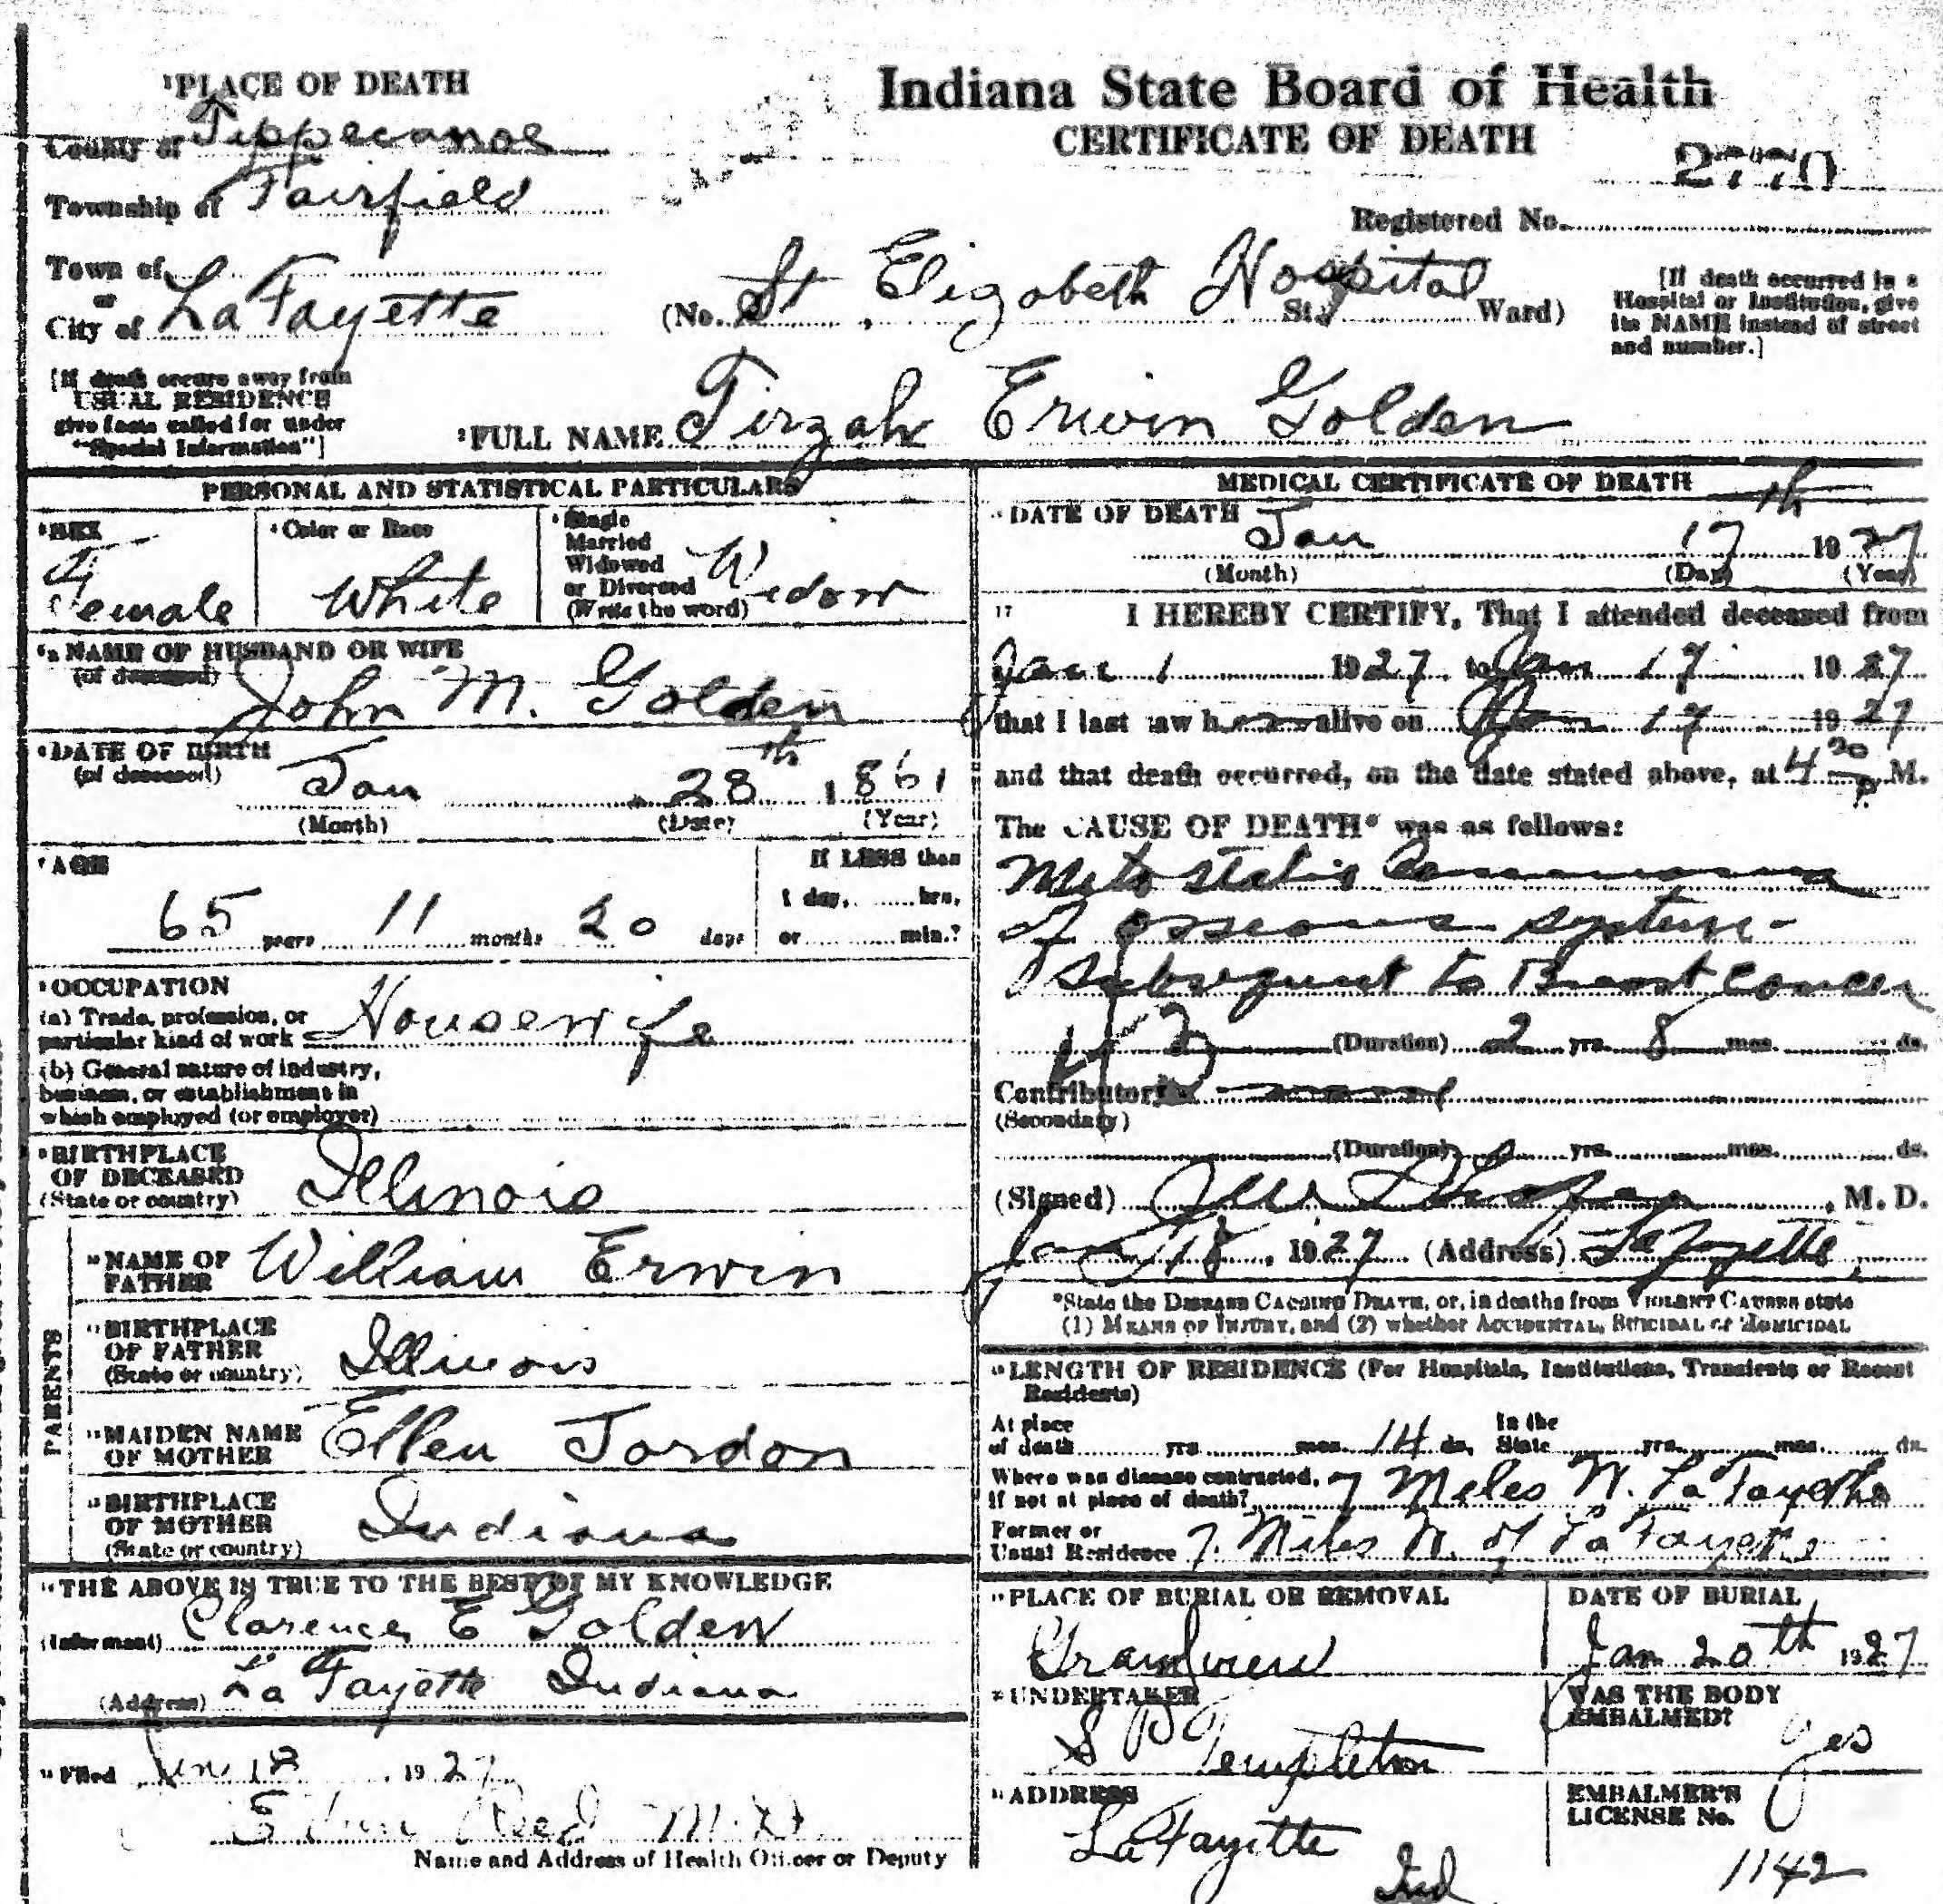 ¹PLACE OF DEATH
County of Tippecanoe
Township of Fairfield
Town of
or
City of LaFayette
[If death occurs away from
USUAL RESIDENCE
give facts called for under
"Special Information"]
Indiana State Board of Health
CERTIFICATE OF DEATH
2770
Registered No.
(No. St. Elizabeth Hospital St., Ward)
[If death occurred in a
Hospital or Institution, give
its NAME instead of street
and number.]
²FULL NAME Tirzah Erwin Golden
PERSONAL AND STATISTICAL PARTICULARS
SEX
Female
Color or Race
White
Single
Married
Widowed
or Divorced
(Write the word)
Widow
NAME OF HUSBAND OR WIFE
(of deceased)
John M. Golden
DATE OF BIRTH
(of deceased)
Jan 28th, 1861
(Month) (Date) (Year)
AGE
65 years 11 months 20 days
If LESS than
1 day, hrs.
or min.?
OCCUPATION
(a) Trade, profession, or
particular kind of work Housewife
(b) General nature of industry,
business, or establishment in
which employed (or employer)
BIRTHPLACE
OF DECEASED
(State or country) Illinois
PARENTS
NAME OF
FATHER William Erwin
BIRTHPLACE
OF FATHER
(State or country) Illinois
MAIDEN NAME
OF MOTHER Ellen Jordon
BIRTHPLACE
OF MOTHER
(State or country) Indiana
THE ABOVE IS TRUE TO THE BEST OF MY KNOWLEDGE
(Informant) Clarence E Golden
(Address) LaFayette Indiana
Filed Jan 18, 1927
Reed M.D.
Name and Address of Health Officer or Deputy
MEDICAL CERTIFICATE OF DEATH
DATE OF DEATH
Jan 17th 1927
(Month) (Day) (Year)
17 I HEREBY CERTIFY, That I attended deceased from
Jan 1 1927, to Jan 17 1927
that I last saw her alive on Jan 17 1927
and that death occurred, on the date stated above, at 4 30 P. M.
The CAUSE OF DEATH* was as follows:
Metastatic Carcinoma
of osseous system -
subsequent to Breast cancer
43 (Duration) 2 yrs. 8 mos. ds.
Contributory
(Secondary)
(Duration) yrs. mos. ds.
(Signed) , M. D.
Jan 18, 1927 (Address) Lafayette
*State the DISEASE CAUSING DEATH, or, in deaths from VIOLENT CAUSES state
(1) MEANS OF INJURY, and (2) whether ACCIDENTAL, SUICIDAL or HOMICIDAL
LENGTH OF RESIDENCE (For Hospitals, Institutions, Transients or Recent
Residents)
At place
of death yrs. mos. 14 ds. In the
State yrs. mos. ds.
Where was disease contracted,
if not at place of death? 7 Miles N. LaFayette
Former or
Usual Residence 7 Miles N. of LaFayette
PLACE OF BURIAL OR REMOVAL
Grandview
DATE OF BURIAL
Jan 20th 1927
UNDERTAKER
S B Templeton
WAS THE BODY
EMBALMED?
Yes
ADDRESS
LaFayette
Ind
EMBALMER'S
LICENSE No.
1142